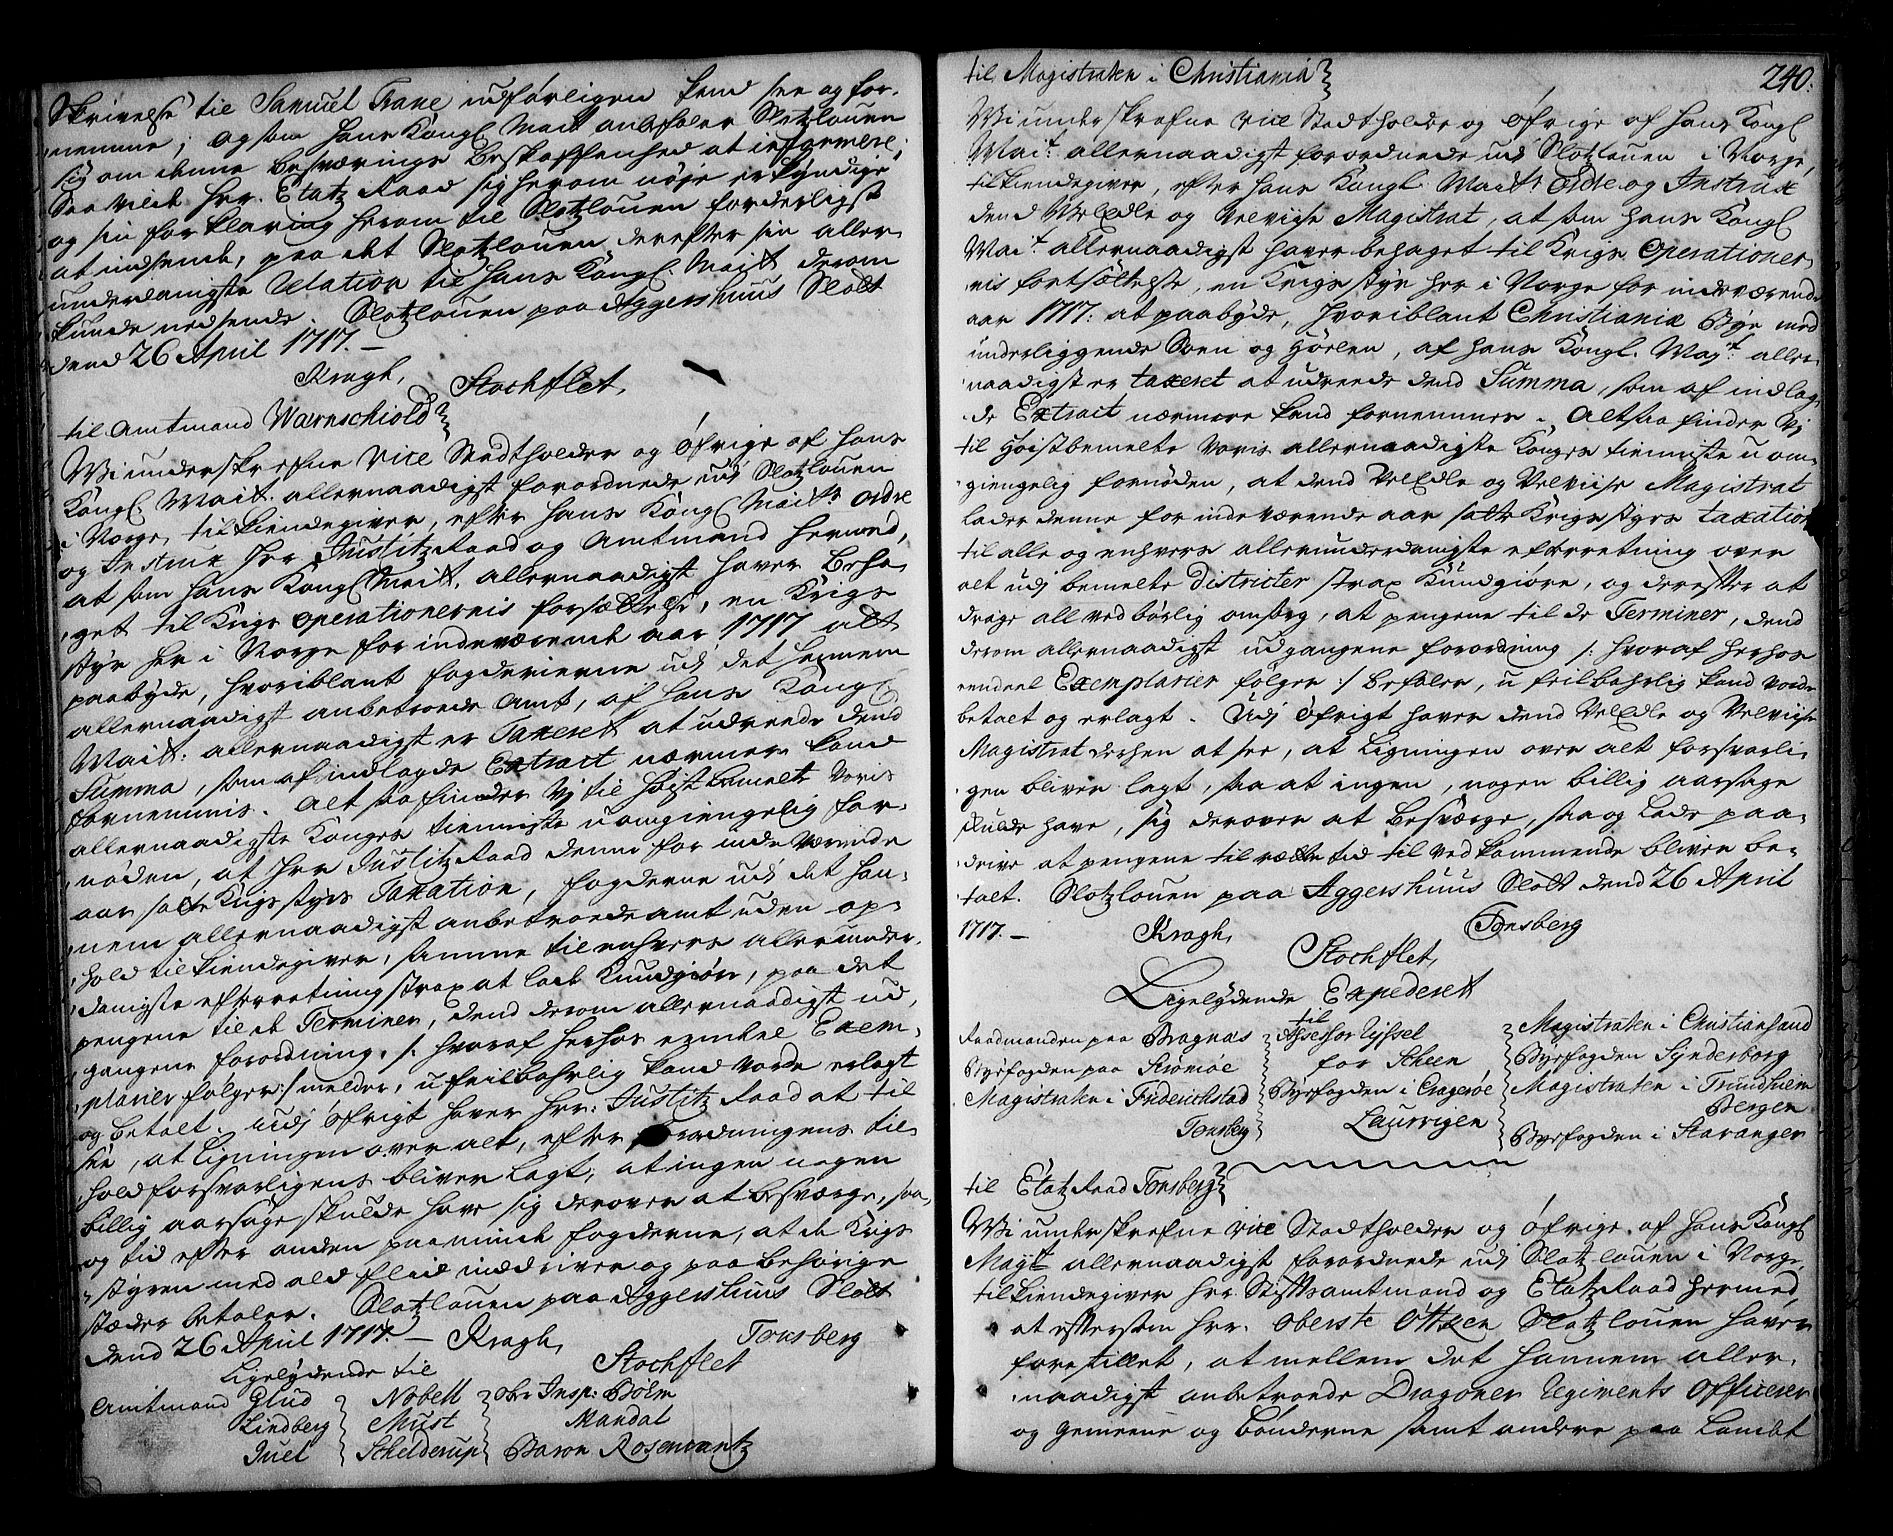 Skrivelse til Samuel Trane udførligen kand see og for-
nemme; og som Hans Kongl. Maitt anbefaler Slotzlouen
sig om denne besværings beskaffenhed at informere;
Saa vilde Hr. Etatz Raad sig herom nøye erkyndige
og sin forklaring herom til Slotzlouen forderligst
at indsende, paa det Slotzlouen derefter sin aller-
underdanigste Relation til Hans Kongl. Maitt derom
kunde nedsende. Slotzlouen paa Aggershuus Slott
dend 26 April 1717.
Kragh, Stochflet,
til Amtmand Wærnschiold
Wi underskrefne Vice Stadtholder og Øfrige af Hans
Kongl. Maitt. allernaadigst forordnede udj Slotzlouen
i Norge, tilkiendegiver, efter Hans Kongl Maitts Ordre
og Instrux Herr Justitz Raad og Amtmand hermed,
at som Hans Kongl. Maitt. allernaadigst haver beha-
get til Krigs operationernis forsættelse, en Krigs
styr her i Norge for indeværende aar 1717 at
paabyde, hvoriblant fogderierne udj det hannem
allernaadigst anbetroede Amt, af Hans Kongl
Maitt: allernaadigst er Taxeret at udreede dend
Summa, som af indlagde Extract nærmere kand
fornemmis. Alt saa finder Vj til Høystbemelte Voris
allernaadigste Konges tienniste uomgiengelig for-
nøden, at Herr Justitz Raad denne for indeværende
aar satte Krigsstyrs Taxation, fogderne udj det han-
nem allernaadigst anbetroede amt uden op-
hold tilkiendegiver, samme til enhvers allerunder-
danigste efterretning strax at lade kundgiøre, paa det
pengene til de Terminer, dend derom allernaadigst ud-
gangene forordning /: hvoraf herhos eendeel Exem-
plarier følger :/ melder, ufeilbahrlig kand vorde erlagt
og betalt. Udj Øfrigt haver Hr: Justitz Raad at til-
see, at Ligningen over alt, efter forordningens til-
hold forsvarligens bliver lagt, at ingen nogen
billig aarsage skulde have sig derover at besværge, saa
og tid efter anden paaminde fogderne, at de Krigs
styren med ald fliid inddriver og paa behørige
stæder betaler. Slotzlouen paa Aggershuus Slott
dend 26 April 1717. Kragh, Tonsberg
Stochflet
Ligelydende til
Amtmand Glud Nobell obr Insp: Bølm
Lindberg Must Mandal
Juel Schelderup Baron Rosencrantz
240.
til Magistraten i Christiania
Wi underskrefne Vice Stadtholder og Øfrige af Hans Kongl
Mait. allernaadigst forordnede udj Slotzlouen i Norge,
tilkiendegiver, efter Hans Kongl. Maitts Ordre og Instrux
dend VelEdle og Velviise Magistrat, at som Hans Kongl
Mait. allernaadigst haver behaget til Krigs Operationer-
nis fortsættelse, en Krigsstyr her i Norge for indeværende
aar 1717: at paabyde, hvoriblant Christianiæ Bye med
underliggende Soen og Hørlen, af Hans Kongl. Majt. aller-
naadigst er taxeret at udreede dend Summa, som af indlag-
de Extract nærmere kand fornemmes. Altsaa finder Vj
til Høistbemelte Voris allernaadigste Konges tienniste uom-
giengelig fornøden, at dend VelEdle og Velviise Magistrat
lader denne for indeværende aar satte Krigsstyrs taxation
til alle og enhvers allerunderdanigste efterretning over
alt udj bemelte Districter strax Kundgiøre, og derefter at
drage all vedbørlig omsorg, at pengene til de Terminer, dend
derom allernaadigst udgangene forordning /: hvoraf herhos
eendeel Exemplarier følger :/ befaler, ufeilbahrlig kand vorde
betalt og erlagt. Udj Øfrigt haver dend VelEdle og Velviise
Magistrat derhen at see, at Ligningen over alt forsvarli-
gen bliver lagt, saa at ingen, nogen billig aarsage
skulde have, sig derover at besværge, saa og lade paa-
drive at pengene til rætte tid til vedkommende bliver be-
talt. Slotzlouen paa Aggershuus Slott dend 26 April
1717. Kragh, Tonsberg
Stochflet,
Ligelydende Expederet
til
Raadmanden paa Bragnæs Assessor Tyssel Magistraten i Christiansand
Byefogden paa Strømsøe for Scheen Byefogden Synderborg
Magistraten i Friderichstad Byefogden i Cragerøe Magistraten i Trundheim
Tonsberg Laurvigen Bergen
Byefogden i Stavanger
til Etatz Raad Tonsberg
Wi underskrefne vice Stadtholder og Øfrige af Hans Kongl
Mayt allernaadigst forordnede udj Slotzlouen i Norge,
tilkiendegiver Hr: Stiftsamtmand og Etatz Raad hermed,
at eftersom Hr. Oberste Ottzen Slotzlouen haver
foretillet, at mellem det hannem aller-
naadigst anbetroede Dragoner Regiments Officerer
og gemeene og bønderne samt andre paa Landet